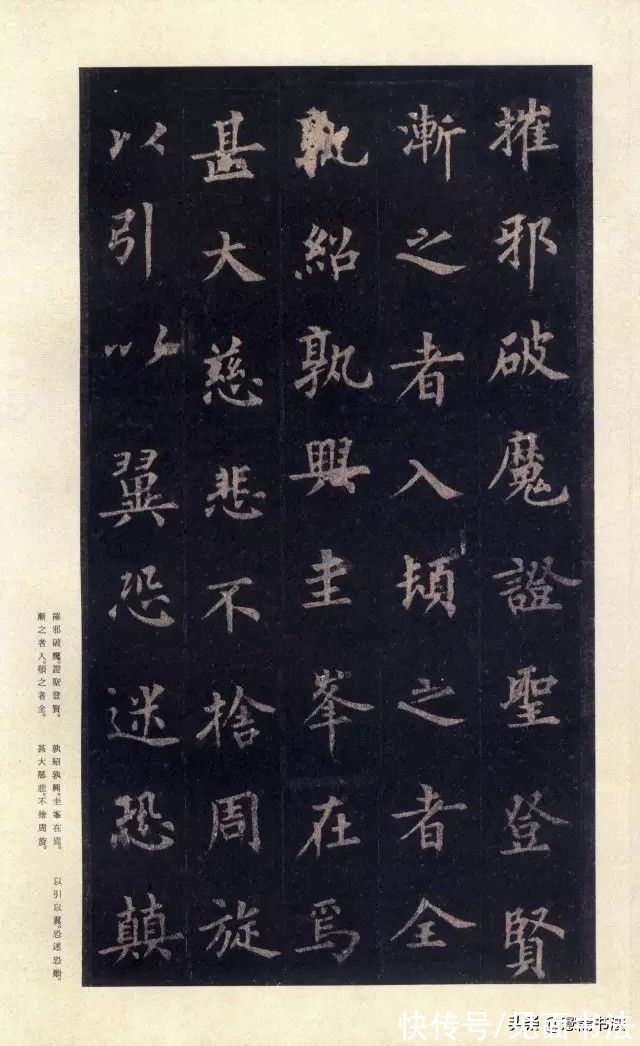 摧邪破魔證聖登賢
漸之者入頓之者全
孰紹孰興圭峯在焉
甚大慈悲不捨周旋
以引以翼恐迷恐顛
摧邪破魔。證聖登賢。 孰紹孰興。圭峯在焉。 以引以翼。恐迷恐顛。
漸之者入。頓之者全。 甚大慈悲。不捨周旋。
快传号/
头条
书法